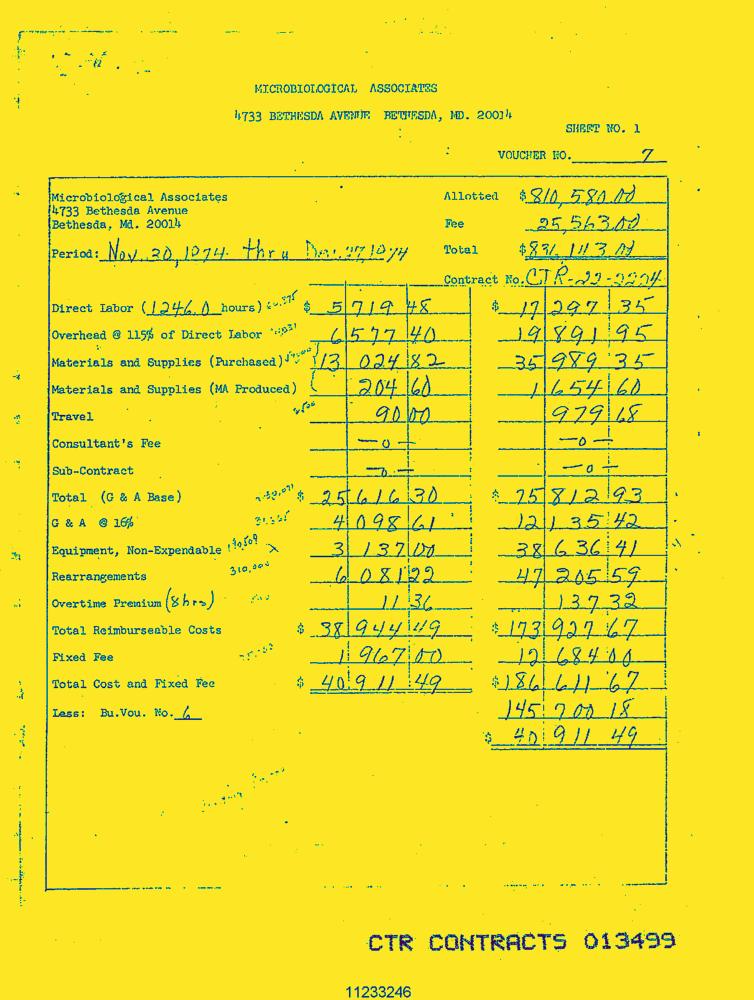 MICROBIOLOGICAL ASSOCIATES
4733 BETHESDA AVENUE BETHESDA, MD. 20014
SHEET NO. 1
VOUCHER NO. 7
Microbiological Associates Allotted $810,580.00
4733 Bethesda Avenue
Bethesda, Md. 20014 Fee 25,563.00
Period: Nov. 30, 1974 thru Dec. 27, 1974 Total $836,143.00
Contract No. CTR-22-2204
Direct Labor (1246.0 hours) $ 5 719 48 $ 17 297 35
Overhead @ 115% of Direct Labor 6 577 40 19 891 95
Materials and Supplies (Purchased) 13 024 82 35 989 35
Materials and Supplies (MA Produced) 204 60 1 654 60
Travel 90 00 979 68
Consultant's Fee —0— —0—
Sub-Contract —0— —0—
Total (G & A Base) $ 25 616 30 $ 75 812 93
G & A @ 16% 4 098 61 12 135 42
Equipment, Non-Expendable 3 137 00 38 636 41
Rearrangements 310,000 6 081 22 47 205 59
Overtime Premium (8 hrs) 11 36 137 32
Total Reimburseable Costs $ 38 944 49 $ 173 927 67
Fixed Fee 1 967 00 12 684 00
Total Cost and Fixed Fee $ 40 911 49 $ 186 611 67
Less: Bu.Vou. No. 6 145 700 18
$ 40 911 49
CTR CONTRACTS 013499
11233246